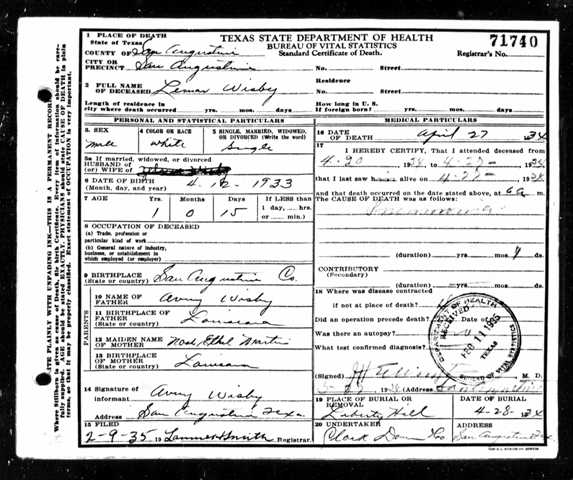 TEXAS STATE DEPARTMENT OF HEALTH
BUREAU OF VITAL STATISTICS
Standard Certificate of Death.
71740
Registrar's No.
1 PLACE OF DEATH
State of Texas
COUNTY OF San Augustine
CITY OR
PRECINCT San Augustine No. Street
2 FULL NAME
OF DECEASED Lemar Wisby
Residence
No. Street
Length of residence in
city where death occurred yrs. mos. days
How long in U. S.
if foreign born? yrs. mos. days
PERSONAL AND STATISTICAL PARTICULARS
3. SEX
male
4 COLOR OR RACE
white
5 SINGLE, MARRIED, WIDOWED,
OR DIVORCED (Write the word)
Single
5a If married, widowed, or divorced
HUSBAND OF
(or) WIFE OF
6 DATE OF BIRTH
(Month, day, and year)
4 - 12 - 1933
7 AGE
Years Months Days
1 0 15
If LESS than
1 day, hrs.
or min.
8 OCCUPATION OF DECEASED
(a) Trade, profession or
particular kind of work
(b) General nature of industry,
business, or establishment in
which employed (or employer)
9 BIRTHPLACE San Augustine Co.
(State or country)
PARENTS
10 NAME OF
FATHER Avery Wisby
11 BIRTHPLACE OF FATHER
(State or country) Louisiana
12 MAIDEN NAME
OF MOTHER Ethel
13 BIRTHPLACE
OF MOTHER
(State or country) Louisiana
14 Signature of
informant Avery Wisby
Address San Augustine Texas
15 FILED
2-9-35 19 Registrar.
MEDICAL PARTICULARS
16 DATE
OF DEATH April 27 34
17
I HEREBY CERTIFY, That I attended deceased from
4-20 1934, 4-27- 1934
that I last saw h alive on 1934
and that death occurred on the date stated above, at 6 a m.
The CAUSE OF DEATH was as follows:
(duration) yrs. mos. 9 ds.
CONTRIBUTORY
(Secondary)
(duration) yrs. mos. ds.
18 Where was disease contracted
if not at place of death?
Did an operation precede death?
Was there an autopsy?
What test confirmed diagnosis?
DEPARTMENT OF HEALTH
RECEIVED
FEB 11 1935
TEXAS
(Signed) M. D.
19 (Address) San Augustine
19 PLACE OF BURIAL OR
REMOVAL
Liberty Hill
DATE OF BURIAL
4-28- 34
20 UNDERTAKER
Clark
ADDRESS
San Augustine Tex